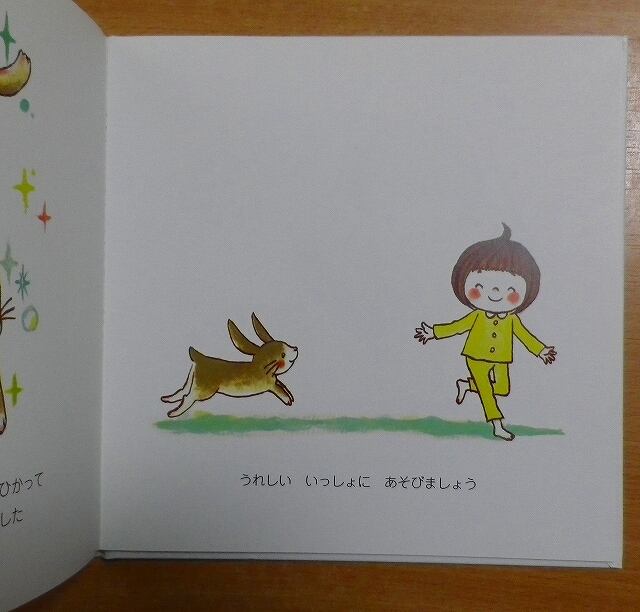 ひかって
した
うれしい　いっしょに　あそびましょう